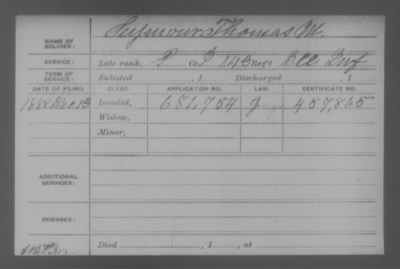 NAME OF SOLDIER: Seymour Thomas M.
SERVICE: Late rank, P Co. 143 Reg't Ill Inf
TERM OF SERVICE: Enlisted , 1 Discharged , 1
DATE OF FILING. CLASS. APPLICATION NO. LAW. CERTIFICATE NO.
1888 Dec 13 Invalid, 681,754 457,865
Widow,
Minor,
ADDITIONAL SERVICES:
REMARKS:
Died , 1 , at